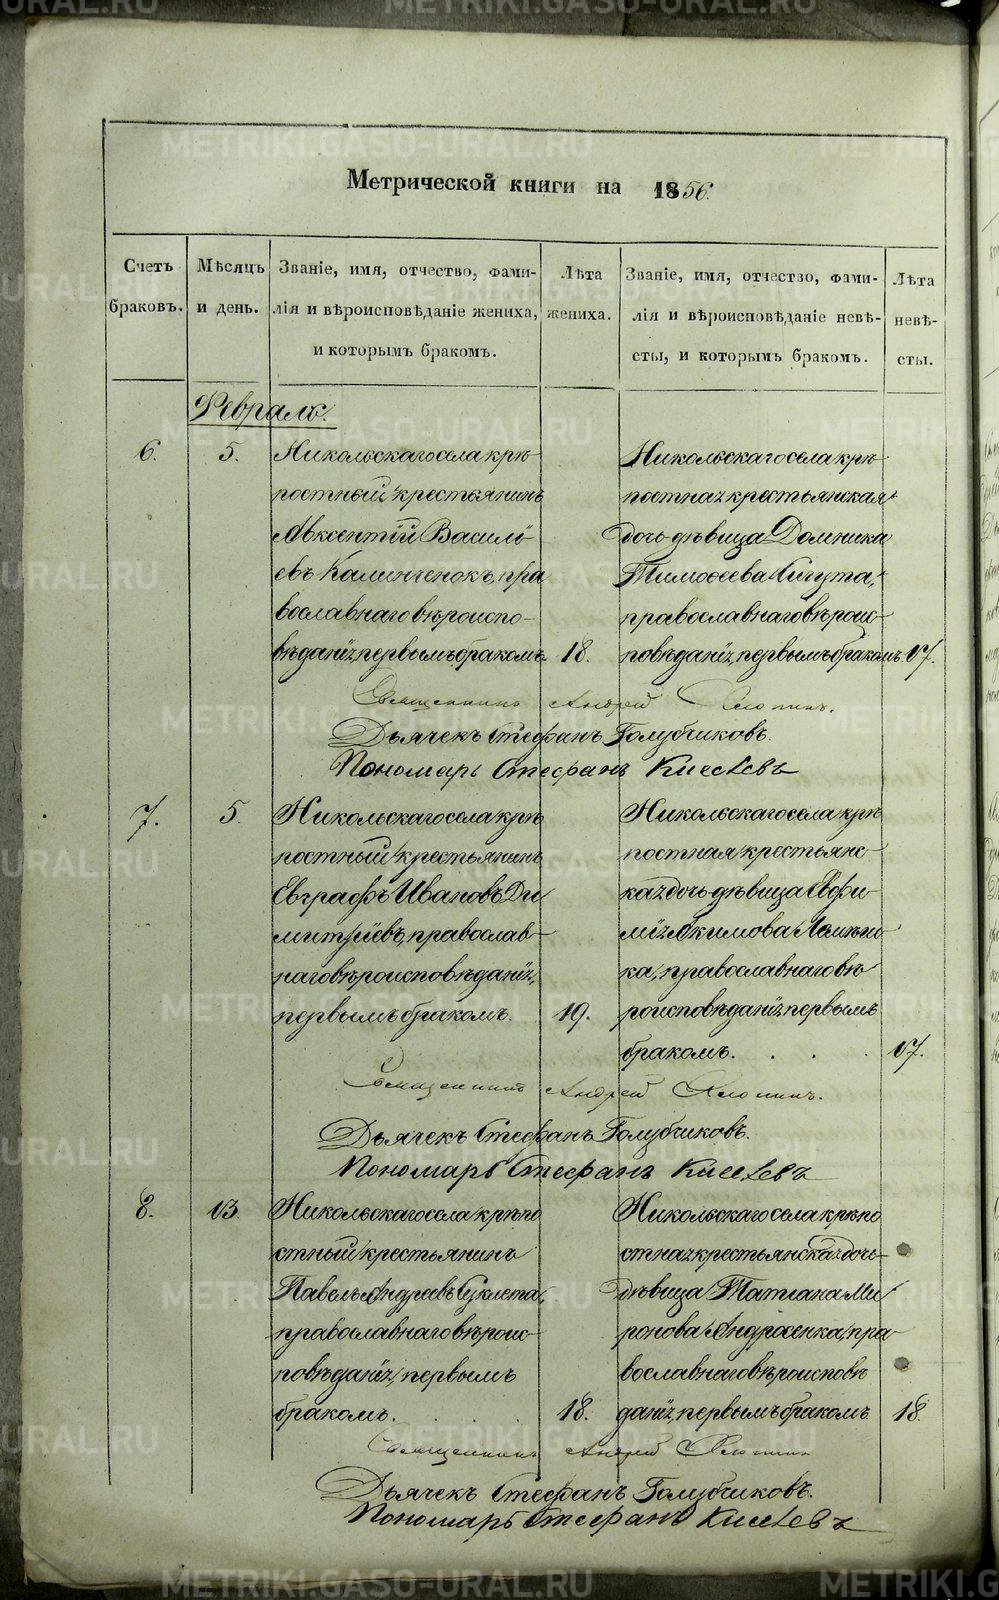 Метрической книги на 1856.
Счетъ браковъ.
Мѣсяцъ и день.
Званіе, имя, отчество, фами-
лія и вѣроисповѣданіе жениха,
и которымъ бракомъ.
Лѣта жениха.
Званіе, имя, отчество, фами-
лія и вѣроисповѣданіе невѣ-
сты, и которымъ бракомъ.
Лѣта невѣ-
сты.
Февраль.
6.
5.
Никольскаго села крѣ-
постный крестьянинъ
Авксентій Василь-
евъ Калинченокъ, пра
вославнаго вѣроиспо-
вѣданія, первымъ бракомъ.
18.
Никольскаго села крѣ-
постная крестьянская
дочь дѣвица Домника
Тимоѳеева
православнаго вѣроис-
повѣданія, первымъ бракомъ
17.
Священникъ Андрей
Дьячекъ Стефанъ Голубчиковъ.
Пономарь Стефанъ Киселевъ
7.
5.
Никольскаго села крѣ
постный крестьянинъ
Евграфъ Ивановъ Ди
митріевъ, православ-
наго вѣроисповѣданія,
первымъ бракомъ.
19.
Никольскаго села крѣ
постная крестьянс-
кая дочь дѣвица Евфи-
мія Акимова
ка, православнаго вѣ
роисповѣданія первымъ
бракомъ.
17.
Священникъ Андрей
Дьячекъ Стефанъ Голубчиковъ.
Пономарь Стефанъ Киселевъ
8.
13.
Никольскаго села крѣпо
стный крестьянинъ
Павелъ Андреевъ Суклета,
православнаго вѣроис-
повѣданія, первымъ
бракомъ.
18.
Никольскаго села крѣпо
стная крестьянская дочь
дѣвица Татіана Ми
ронова Андросенка, пра-
вославнаго вѣроисповѣ
данія, первымъ бракомъ
18.
Священникъ Андрей
Дьячекъ Стефанъ Голубчиковъ.
Пономарь Стефанъ Киселевъ
METRIKI.GASO-URAL.RU